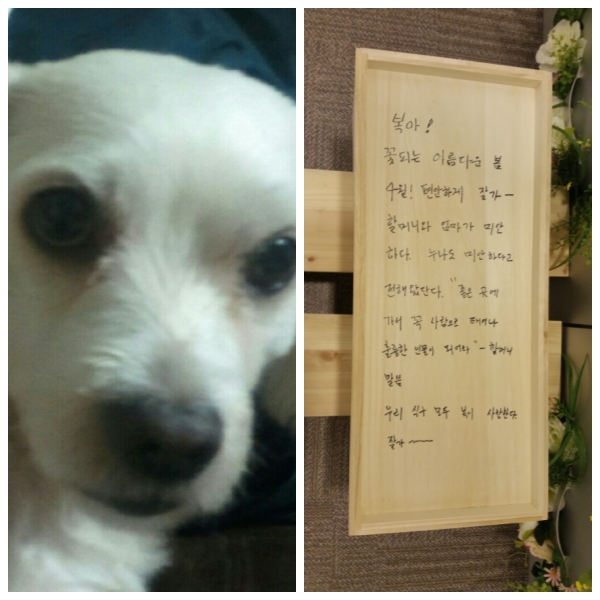 복아!
꽃피는 아름다운 봄
4월! 편안하게 잘가—
할머니와 엄마가 미안
하다. 누나도 미안하다고
전해달란다. "좋은 곳에
가서 꼭 사람으로 태어나
훌륭한 인물이 되어라" - 할머니
말씀
우리 식구 모두 복이 사랑한다.
잘가 ~~~